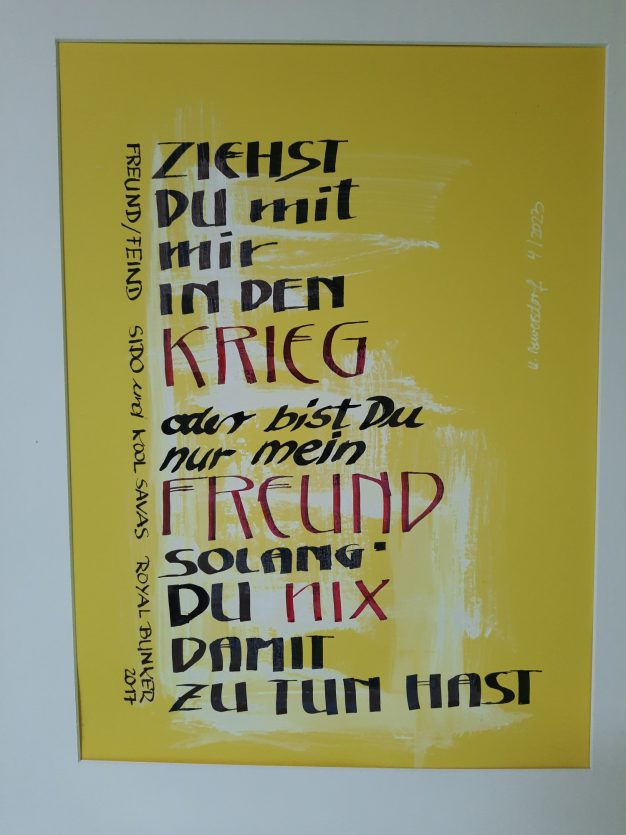 ZIEHST
DU mit
mir
IN DEN
KRIEG
oder bist Du
nur mein
FREUND
SOLANG
DU nix
DAMIT
ZU TUN HAST
FREUND/FEIND SIDO und KOOL SAVAS ROYAL BUNKER
2017
4/2023